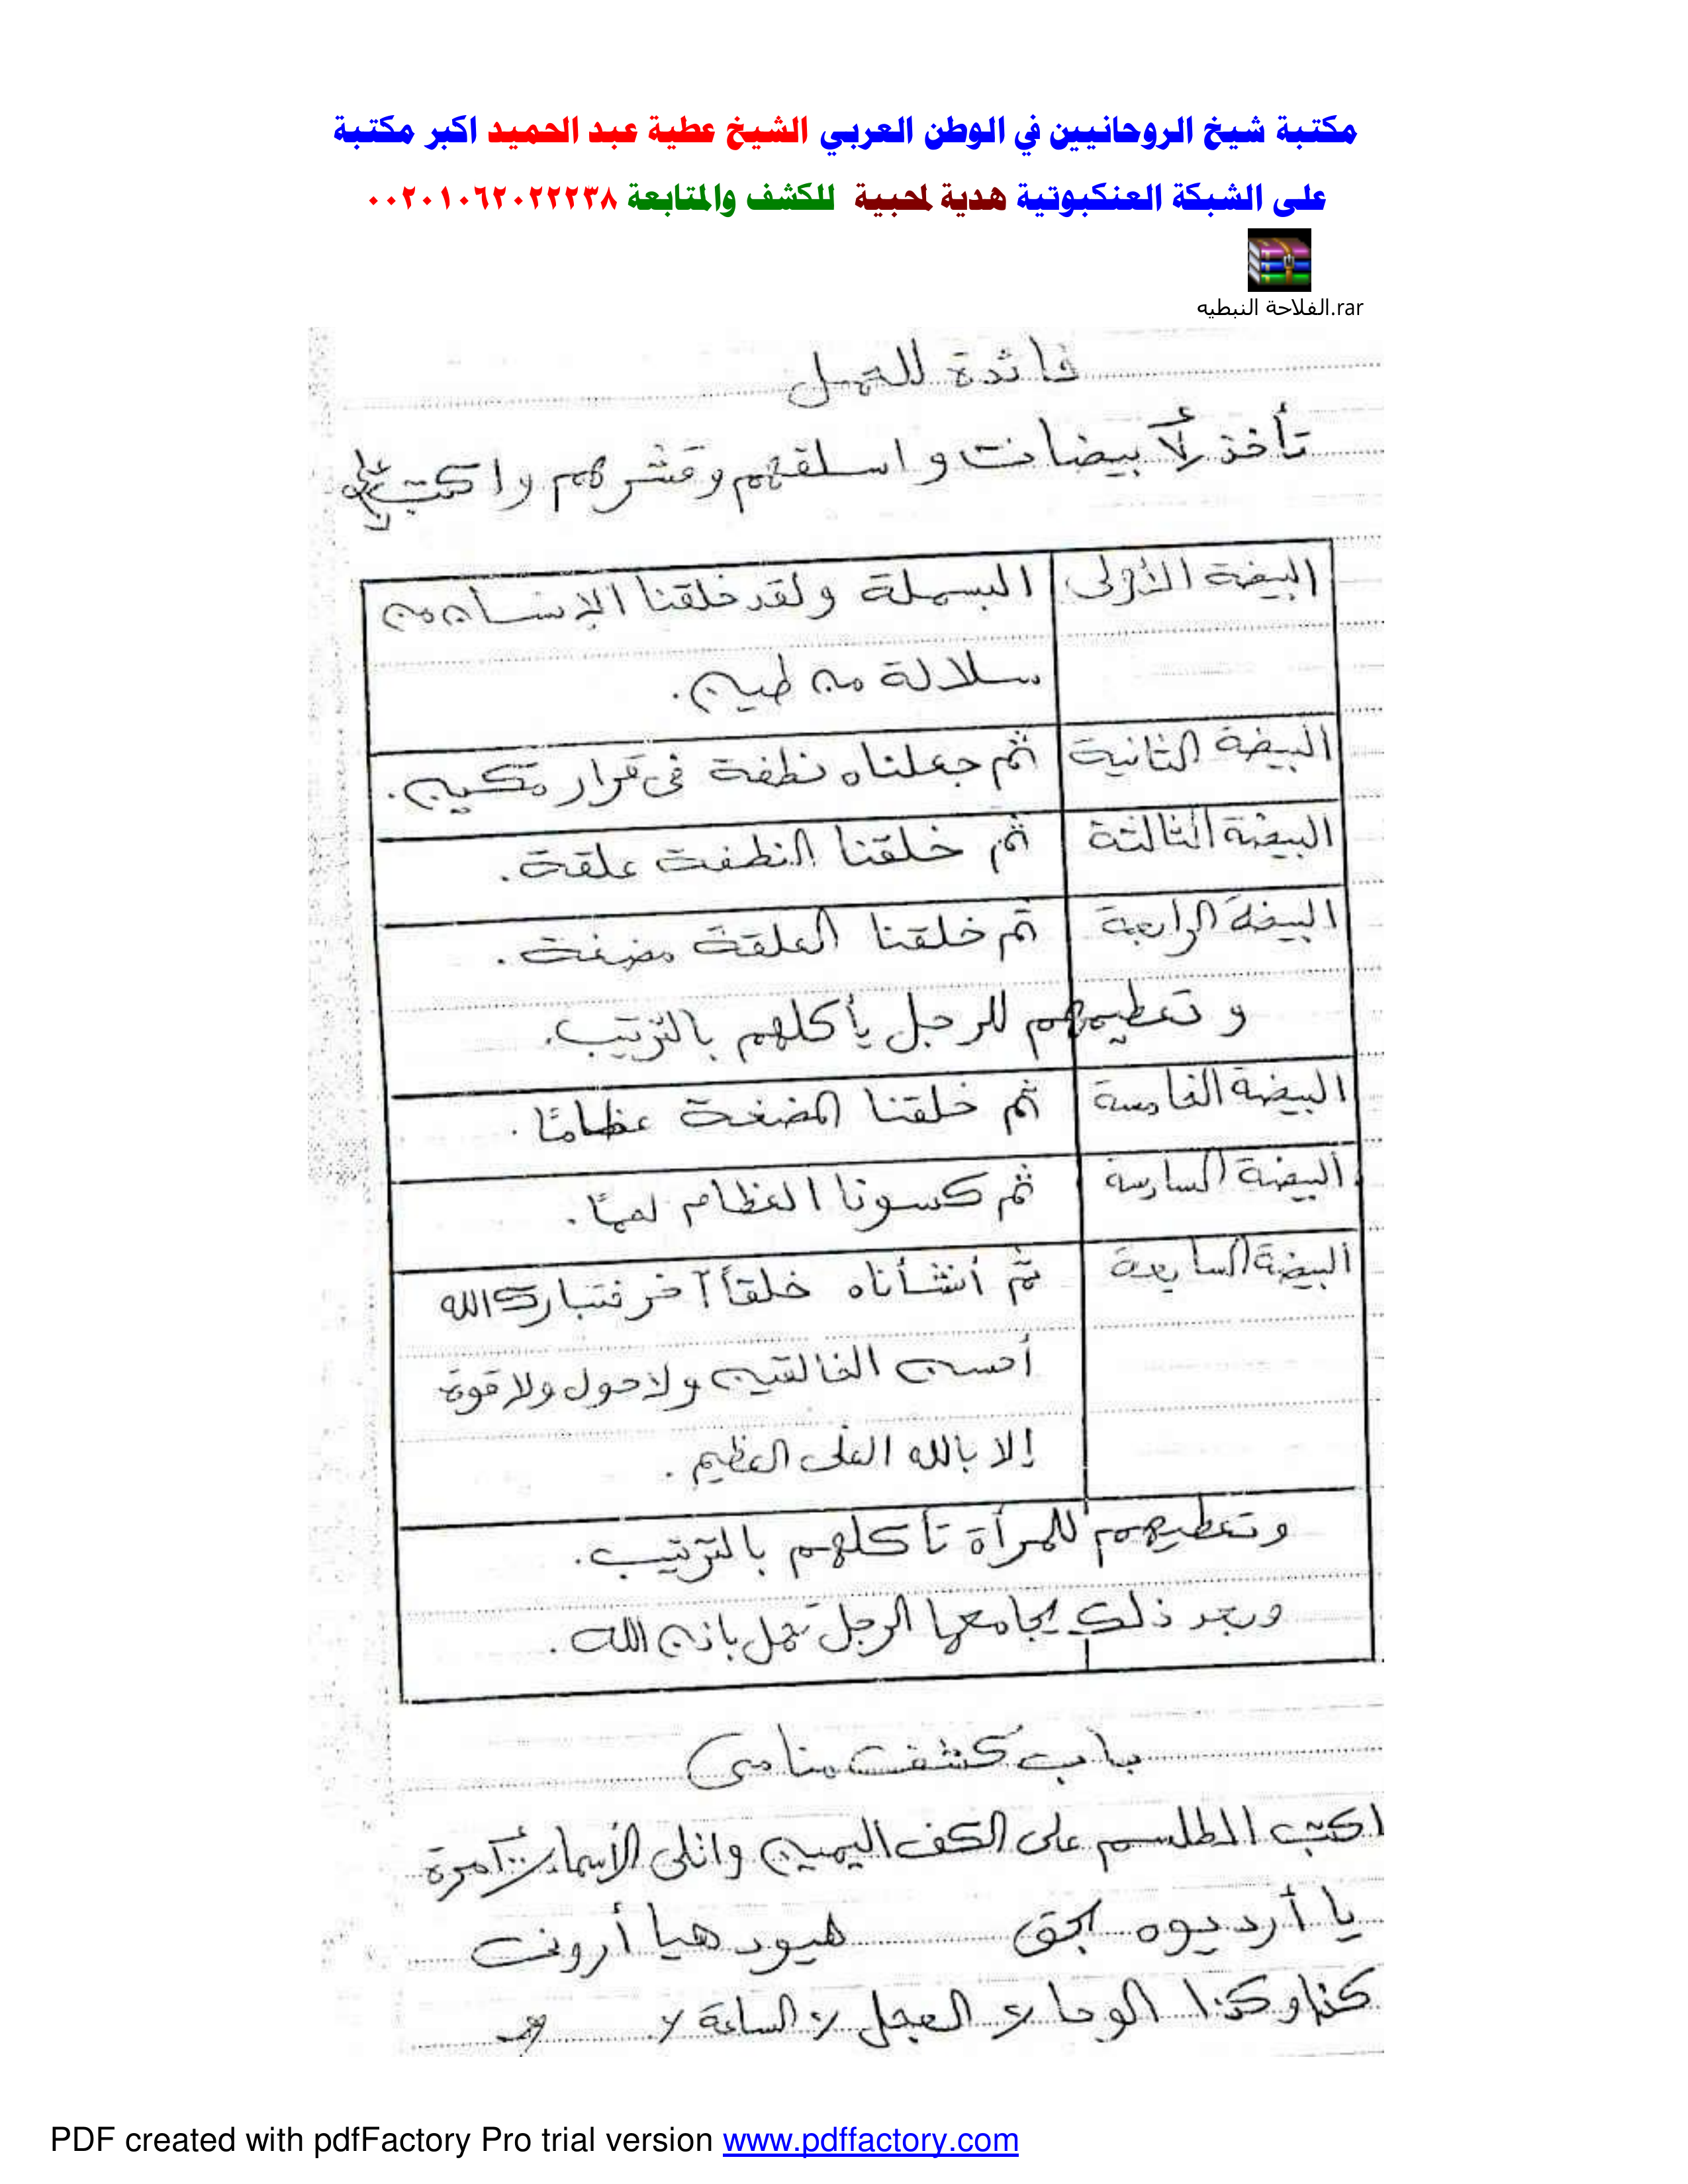 مكتبة شيخ الروحانيين في الوطن العربي الشيخ عطية عبد الحميد اكبر مكتبة
على الشبكة العنكبوتية هدية لمحبية للكشف والمتابعة ٠٠٢٠١٠٦٢٠٢٢٢٣٨
الفلاحة النبطيه.rar
فائدة للحمل
تأخذ بيضات و اسلقهم وقشرهم واكتب على
البيضة الأولى البسملة ولقد خلقنا الإنسان من
سلالة من طين.
البيضة الثانية ثم جعلناه نطفة فى قرار مكين.
البيضة الثالثة ثم خلقنا النطفت علقة.
البيضة الرابعة ثم خلقنا العلقة مضغت.
و تعطيهم للرجل يأكلهم بالترتيب.
البيضة الخامسة ثم خلقنا المضغة عظامًا.
البيضة السادسة ثم كسونا العظام لحمًا.
البيضة السابعة ثم أنشأناه خلقاً آخر فتبارك الله
أحسن الخالقين ولا حول ولا قوة
إلا بالله العلى العظيم.
وتعطيهم للمرأة تأكلهم بالترتيب.
وبعد ذلك يجامعها الرجل تحمل بإذن الله.
باب كشف منامى
اكتب الطلسم على الكف اليمين واتلى الأسماء مرة
يا أرديوه بحق هيود هيا أرونت
كذا وكذا الوحا العجل الساعة
PDF created with pdfFactory Pro trial version www.pdffactory.com